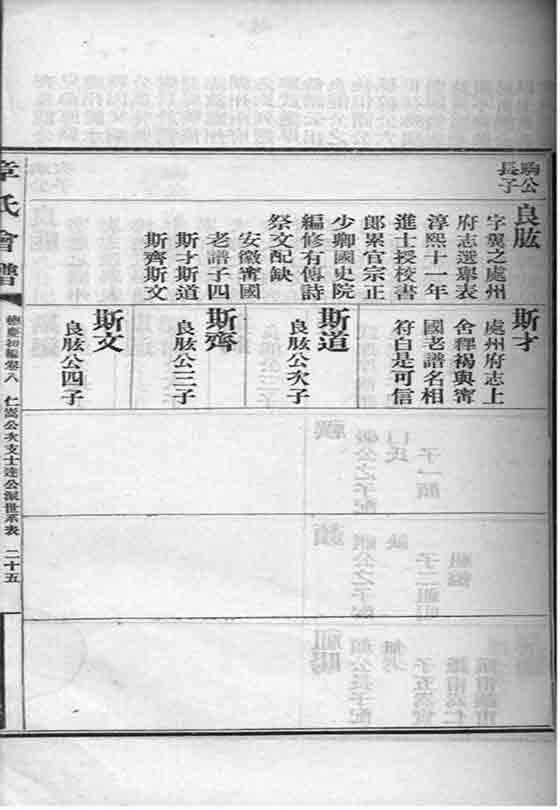 駒公
長子
良肱
字翼之處州
府志選舉表
淳熙十一年
進士授校書
郎累官宗正
少卿國史院
編修有傳詩
祭文配缺
安徽甯國
老譜子四
斯才斯道
斯齊斯文
斯才
處州府志上
舍釋褐與甯
國老譜名相
符自是可信
斯道
良肱公次子
斯齊
良肱公三子
斯文
良肱公四子
章氏會譜
德慶初編卷八
仁嵩公次支士達公派世系表
二十五